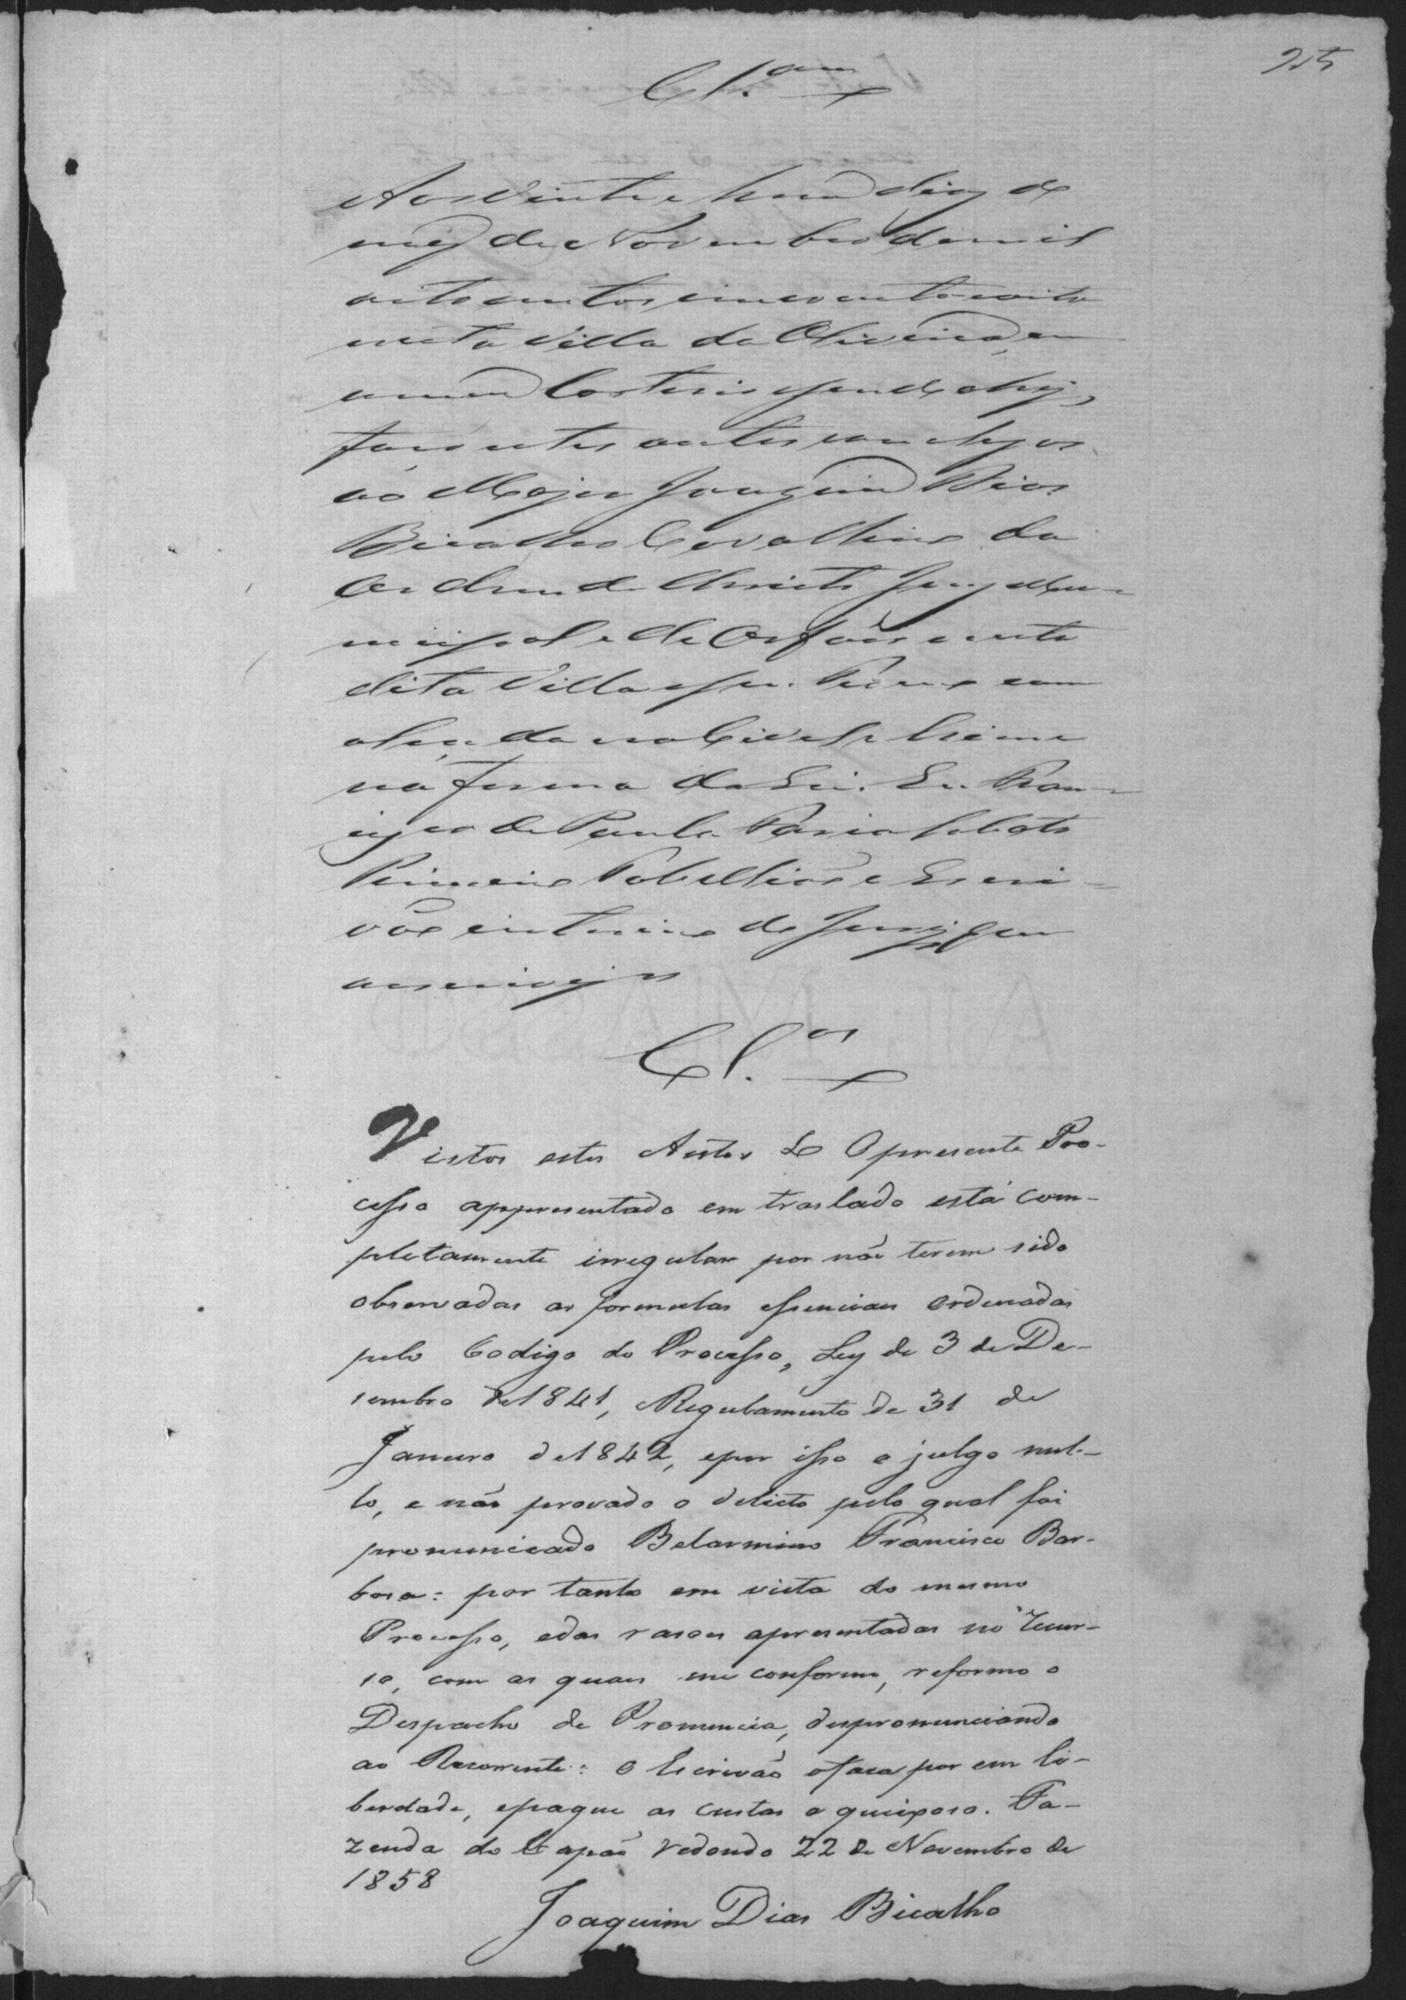 25
Cl.am
Aos vinte e hum dias de
mes de Novembro de mil
oito centos cincoenta e oito
nesta Villa da Oliveira, em
o meu Cartorio sendo ahi,
faço estes autos conclusos
ao Major Joaquim Dias
Bicalho Cavalheiro da
Ordem de Christo Juiz Mu-
nicipal e de Orfãos nesta
dita Villa e seu Termo com
alçada no Civel e Crime
na forma da Lei. Eu Fran-
cisco de Paula Faria Lobato
Primeiro Tabellião e Escri-
vão interino do Juizo que
o escrevi
Cl.os
Vistos estes Autos & O presente Pro-
cesso appresentado em traslado está com-
pletamente irregular por não terem sido
observadas as formulas essenciais ordenadas
pelo Codigo do Processo, Ley de 3 de De-
sembro de 1841, Regulamento de 31 de
Janeiro de 1842, epor isso o julgo nul-
lo, e não provado o delicto pelo qual foi
pronunciado Belarmino Francisco Bar-
bosa: por tanto em vista do mesmo
Processo, edas rasoes apresentadas no recur-
so, com as quaes me conformo, reformo o
Despacho de Pronuncia, despronunciando
ao Recorrente: O Escrivão o faça por em li-
berdade, epague as custas o queixoso. Fa-
zenda do Capão redondo 22 de Novembro de
1858
Joaquim Dias Bicalho